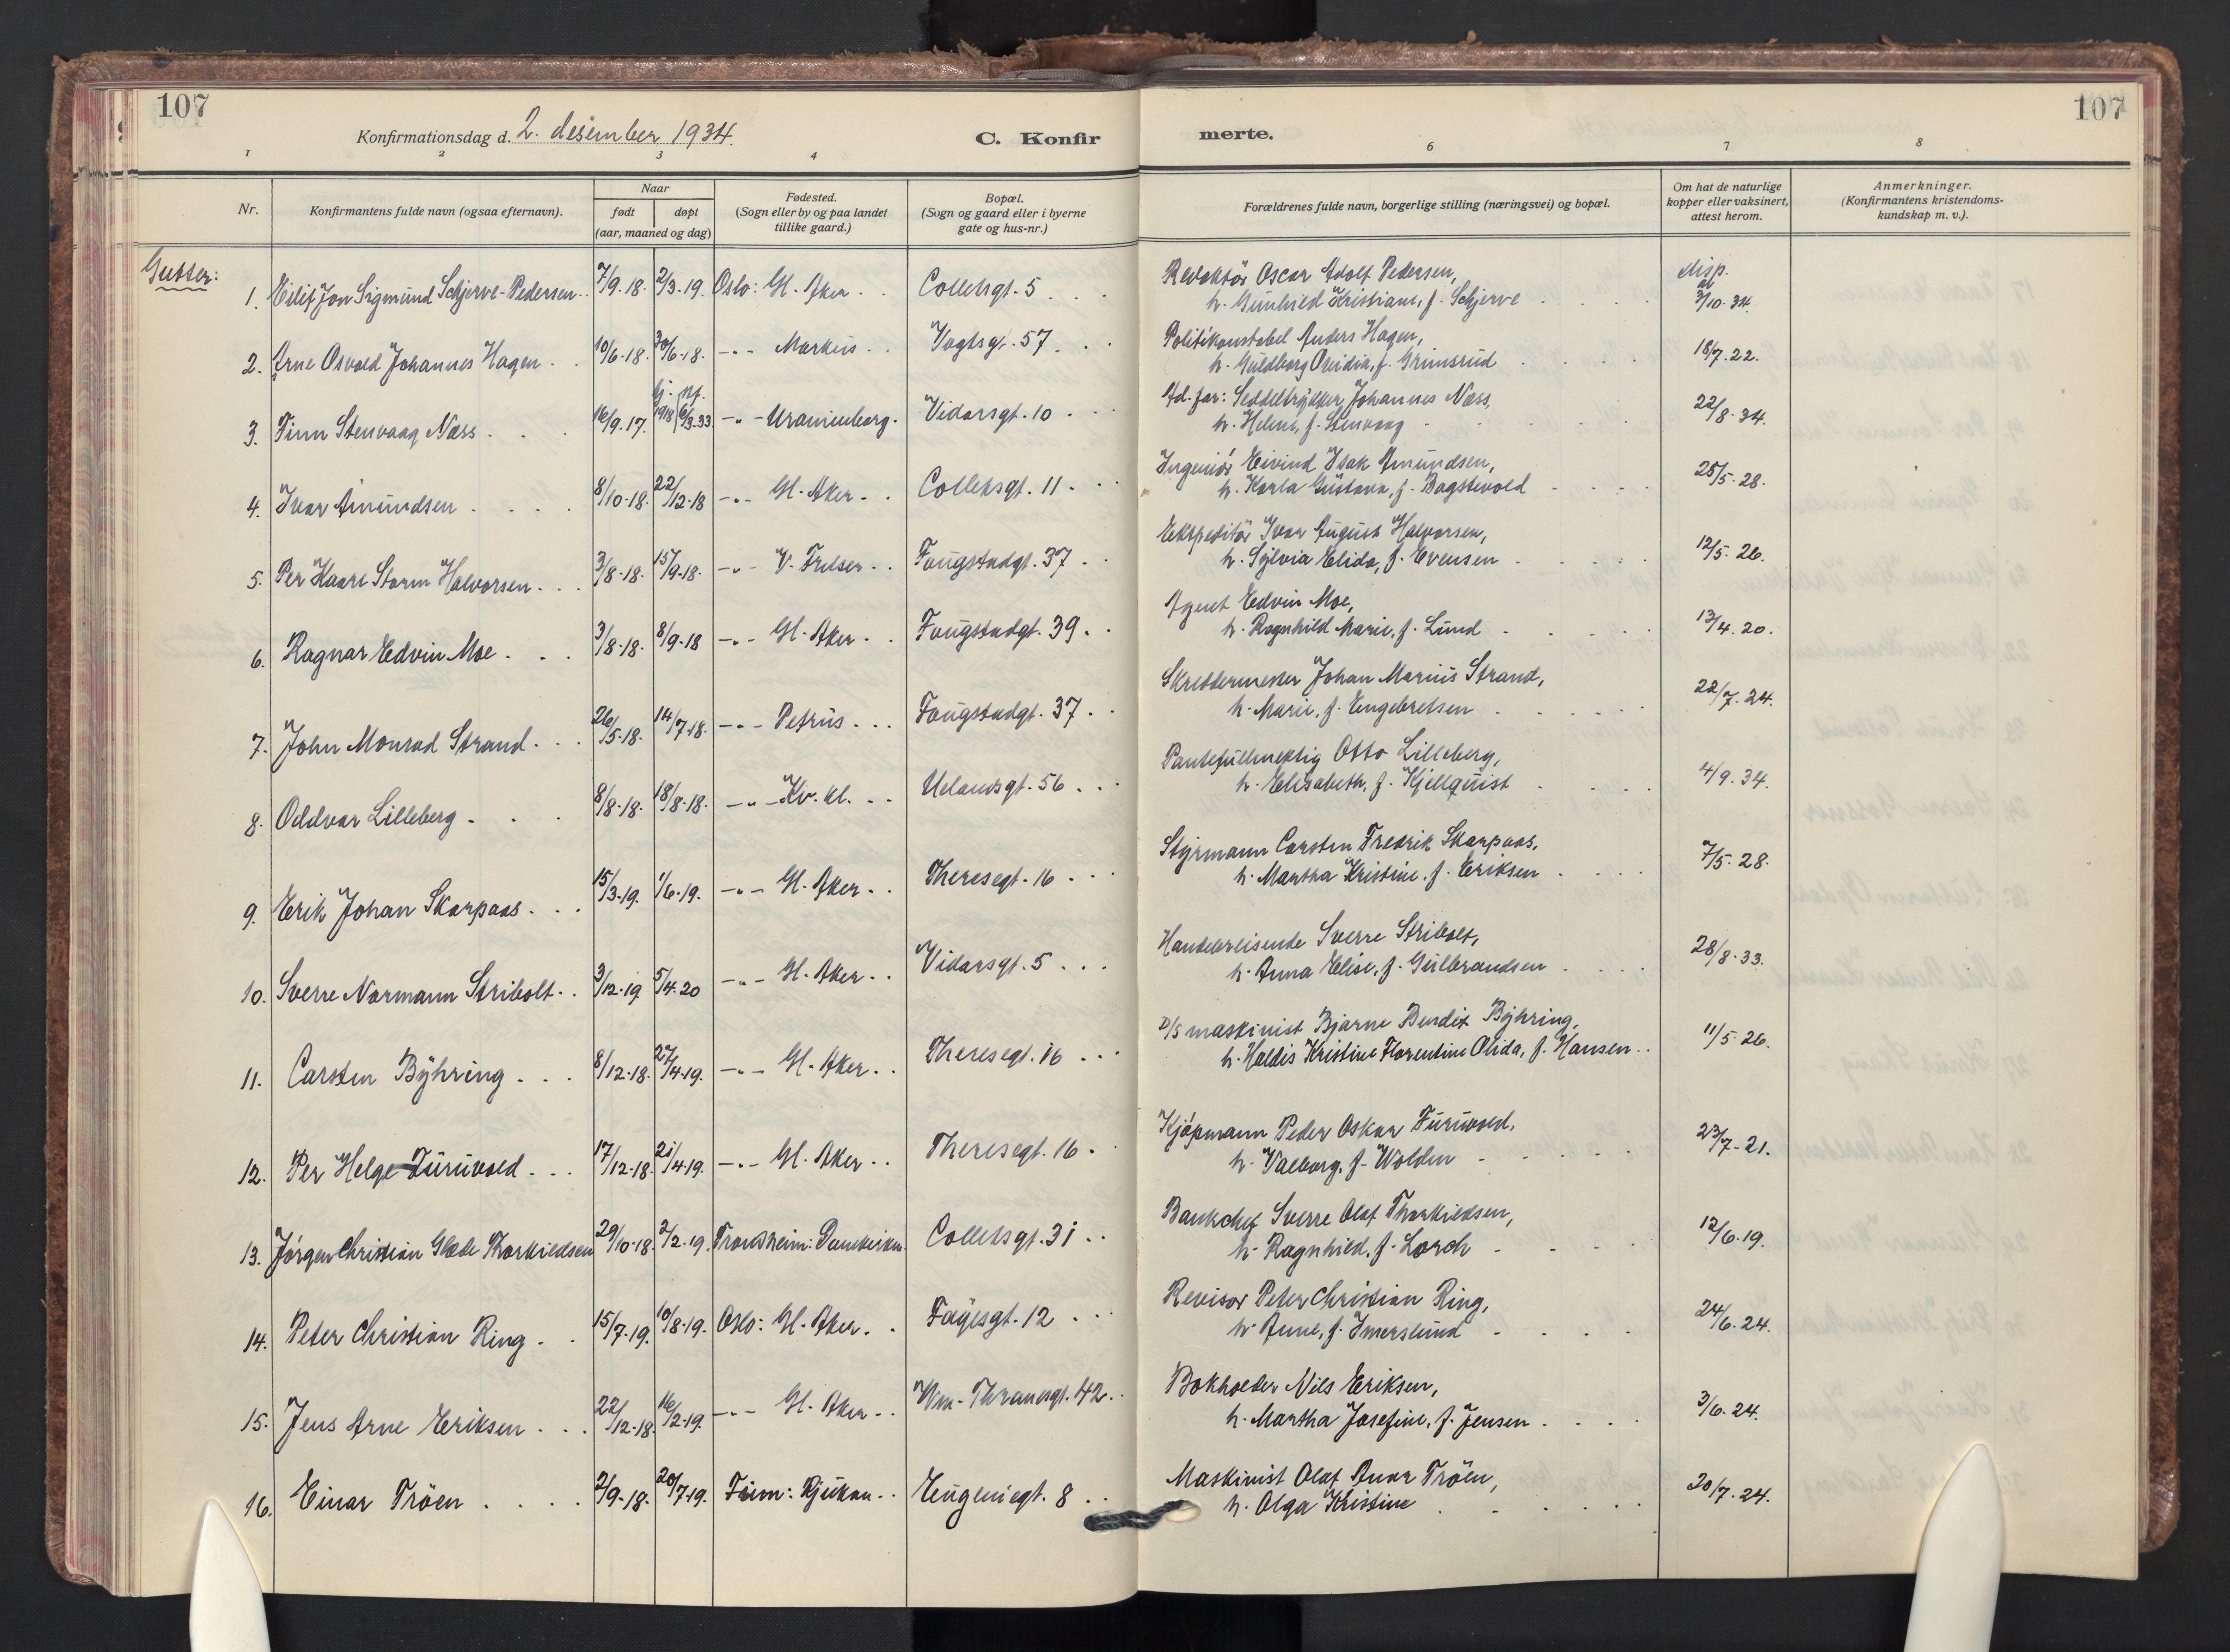 107
107
Konfirmationsdag d. 2. desember 1934.
C. Konfir merte.
1 2 3 4 6 7 8
Nr.
Konfirmantens fulde navn (ogsaa efternavn).
Naar
født døpt
(aar, maaned og dag)
Fødested.
(Sogn eller by og paa landet
tillike gaard.)
Bopæl.
(Sogn og gaard eller i byerne
gate og hus-nr.)
Forældrenes fulde navn, borgerlige stilling (næringsvei) og bopæl.
Om hat de naturlige
kopper eller vaksinert,
attest herom.
Anmerkninger.
(Konfirmantens kristendoms-
kundskap m. v.).
Gutter:
1. Eilif Jon Sigmund Schjerve-Pedersen 7/9.18. 2/3.19. Oslo: Gl. Aker Colletsgt. 5
Redaktör Oscar Adolf Pedersen,
h. Gunhild Kristiane, f. Schjerve
disp.
al
3/10.34.
2. Arne Osvald Johannes Hagen 10/6.18. 30/6.18. -"- Markus Vogtsgt. 57
Politikonstabel Anders Hagen,
h. Guldborg Ovidia, f. Grimsrud
18/7.22.
hj. pf.
3. Finn Stenvaag Næss 16/9.17. 1918 6/3.33 -"- Uranienborg. Vidarsgt. 10
Ad. far: Seddeltrykker Johannes Næss,
h. Helene, f. Stenvaag
22/8.34.
4. Ivar Amundsen 8/10.18. 22/12.18 -"- Gl. Aker Colletsgt. 11
Ingeniör Eivind Isak Amundsen,
h. Karla Gustava, f. Bagstevold
25/5.28.
5. Per Kaare Storm Halvorsen 3/8.18. 15/9.18. -"- V. Frelser Fougstadgt. 37
Ekspeditör Ivar August Halvorsen,
h. Sylvia Elida, f. Evensen
12/5.26.
6. Ragnar Edvin Moe 3/8.18. 8/9.18 -"- Gl. Aker Fougstadgt. 39
Agent Edvin Moe,
h. Ragnhild Marie, f. Lund
13/4.20.
7. John Monrad Strand 26/5.18. 14/7.18. -"- Petrus Fougstadgt. 37
Skreddermester Johan Marius Strand,
h. Marie, f. Engebretsen
22/7.24.
8. Oddvar Lilleberg 8/8.18. 18/8.18. -"- Kv. kl. Uelandsgt. 56
Pantefullmektig Otto Lilleberg,
h. Elisabeth, f. Kjellquist
4/9.34.
9. Erik Johan Skarpaas 15/3.19. 1/6.19. -"- Gl. Aker Theresegt. 16
Styrmann Carsten Fredrik Skarpaas,
h. Martha Kristine, f. Eriksen
7/5.28.
10. Sverre Normann Stribolt 3/12.19 5/4.20 -"- Gl. Aker Vidarsgt. 5
Handelsreisende Sverre Stribolt,
h. Anna Elise, f. Gulbrandsen
28/8.33.
11. Carsten Byhring 8/12.18. 27/4.19. -"- Gl. Aker Theresegt. 16
D/s maskinist Bjarne Bendix Byhring,
h. Haldis Kristine Florentine Olida, f. Hansen
11/5.26.
12. Per Helge Furuvold 17/12.18. 21/4.19. -"- Gl. Aker Theresegt. 16
Kjöpmann Peder Oskar Furuvold,
h. Valborg, f. Wolden
23/7.21.
13. Jörgen Christian Glæde Thorkildsen 29/10.18. 2/2.19. Trondheim: Domkirken Colletsgt. 31
Bankchef Sverre Olaf Thorkildsen,
h. Ragnhild, f. Lorch
12/6.19.
14. Peter Christian Ring 15/7.19. 10/8.19. Oslo: Gl. Aker Fayesgt. 12
Revisor Peter Christian Ring,
h. Anne, f. Imerslund
24/6.24.
15. Jens Arne Eriksen 22/12.18. 16/2.19. -"- Gl. Aker Wm. Thranesgt. 42
Bokholder Nils Eriksen,
h. Martha Josefine, f. Jensen
3/6.24.
16. Einar Tröen 2/9.18. 20/7.19. Tinn: Rjukan Eugeniegt. 8
Maskinist Olaf Anar Tröen,
h. Olga Kristine
20/7.24.